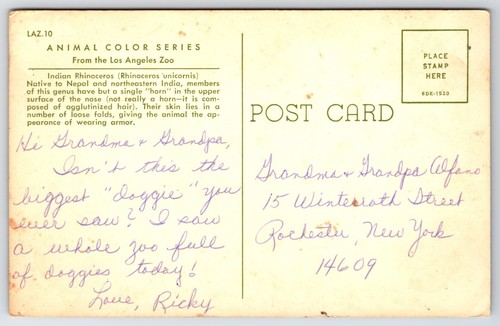 LAZ.10
ANIMAL COLOR SERIES
From the Los Angeles Zoo
Indian Rhinaceros (Rhinaceros unicornis)
Native to Nepal and northeastern India, members
of this genus have but a single "horn" in the upper
surface of the nose (not really a horn—it is com-
posed of agglutinized hair). Their skin lies in a
number of loose folds, giving the animal the ap-
pearance of wearing armor.
Hi Grandma & Grandpa,
Isn't this the
biggest "doggie" you
ever saw? I saw
a whole zoo full
of doggies today!
Love, Ricky
POST CARD
PLACE
STAMP
HERE
6DK-1520
Grandma & Grandpa Alfano
15 Winterroth Street
Rochester, New York
14609